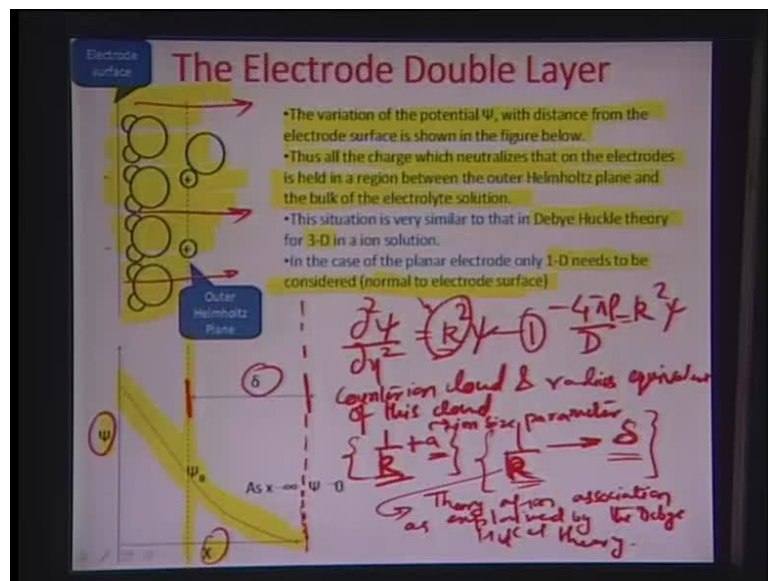 Electrode
surface
The Electrode Double Layer
•The variation of the potential Ψ, with distance from the
electrode surface is shown in the figure below.
•Thus all the charge which neutralizes that on the electrodes
is held in a region between the outer Helmholtz plane and
the bulk of the electrolyte solution.
•This situation is very similar to that in Debye Huckle theory
for 3-D in a ion solution.
•In the case of the planar electrode only 1-D needs to be
considered (normal to electrode surface)
Outer
Helmholtz
Plane
∂²ψ/∂η² = k²ψ — ① -4πρ/D = k²ψ
Counterion cloud & radius equivalent
of this cloud
ion size parameter
{1/k + a} {1/k → δ}
Theory of ion association
as explained by the Debye
theory.
δ
Ψ
Ψ₀
As x ∞ Ψ 0
x